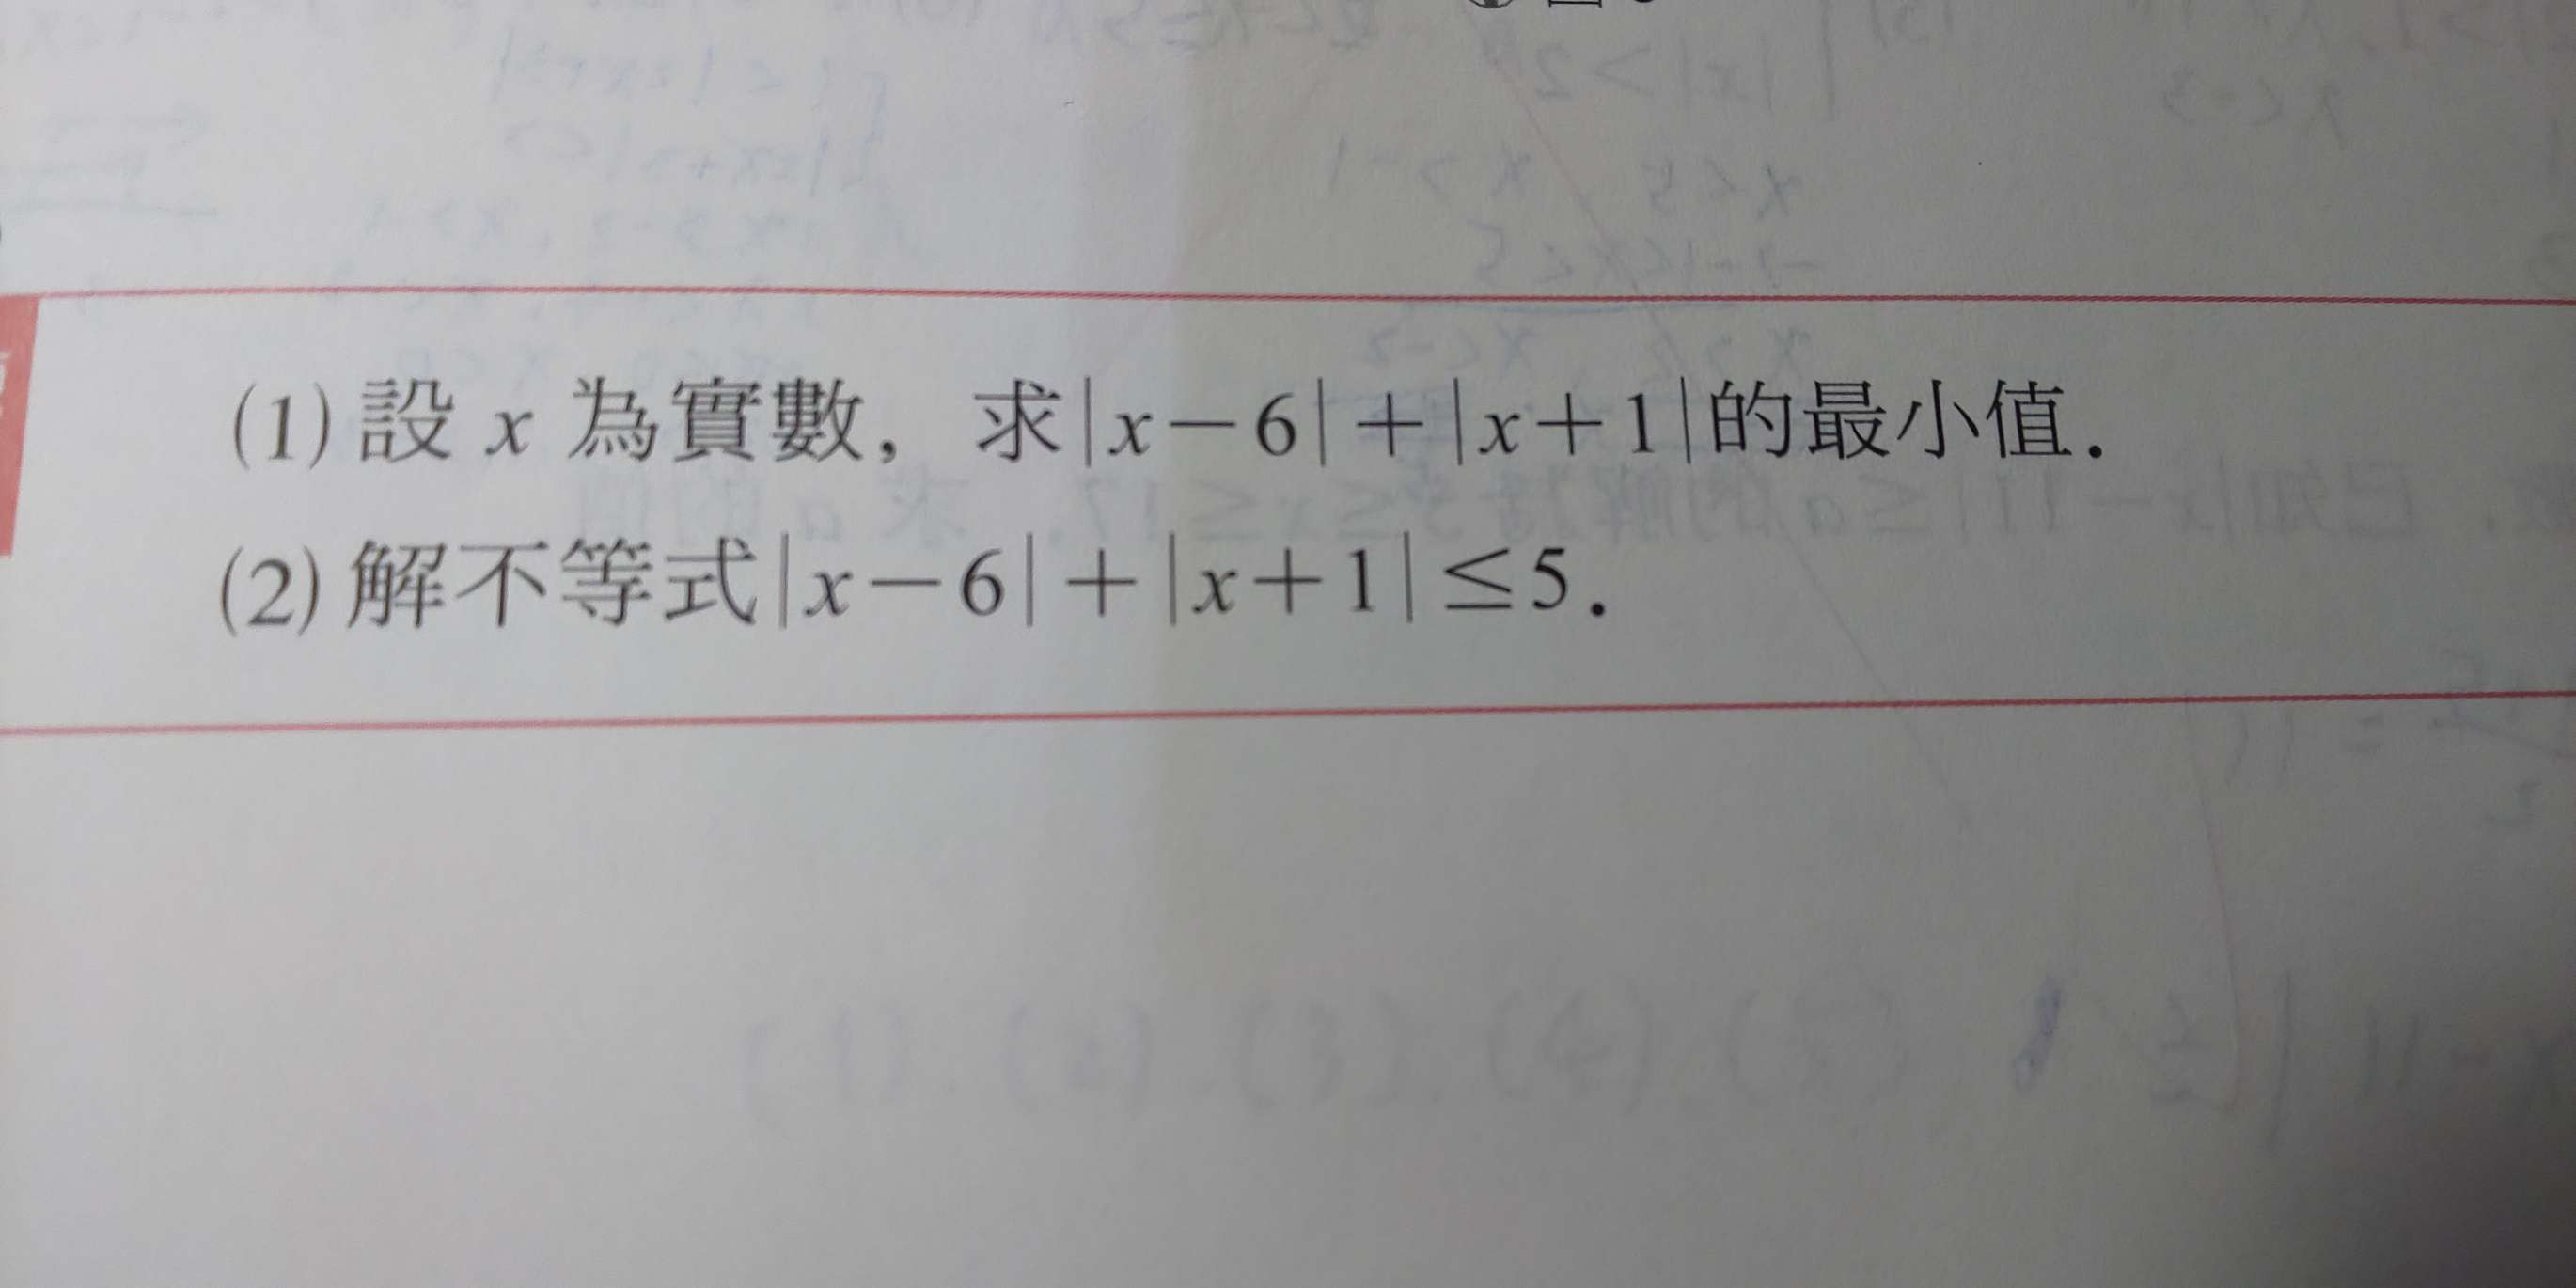 (1) 設 x 為實數，求|x－6|＋|x＋1|的最小值．
(2) 解不等式|x－6|＋|x＋1|≤5．